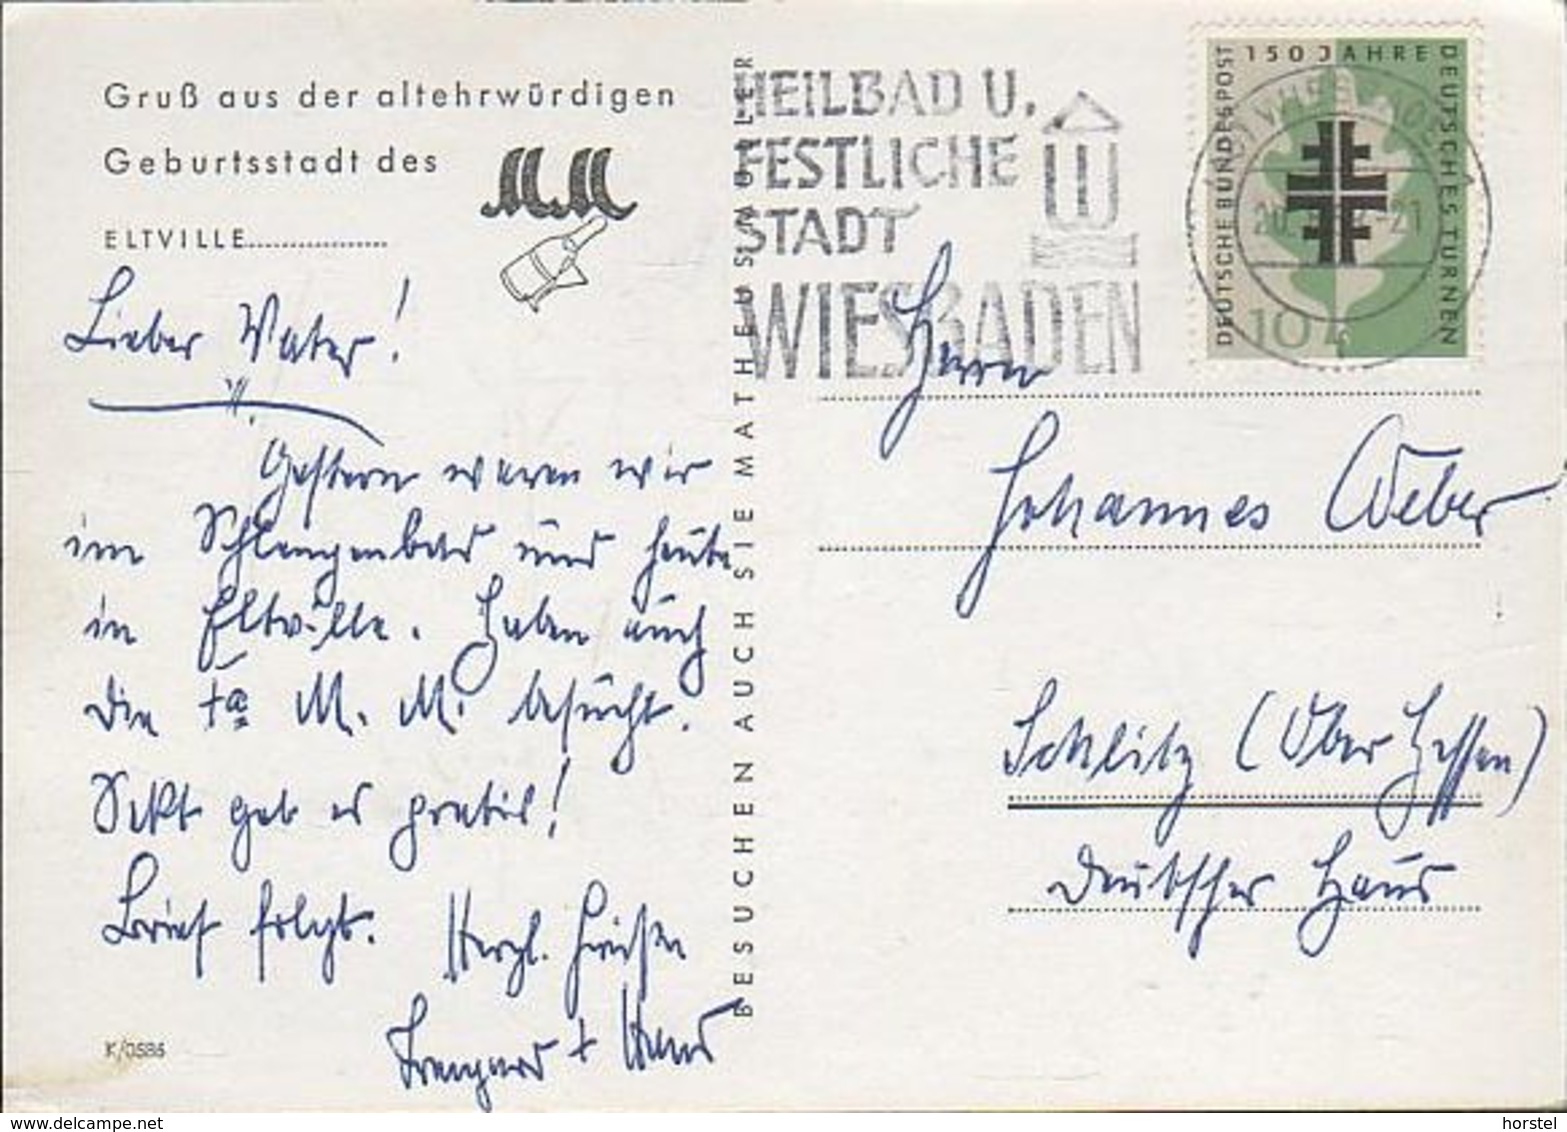 Gruß aus der altehrwürdigen
Geburtsstadt des MM
ELTVILLE
Lieber Vater!
Gestern waren wir
im Schlangenbad und heute
in Eltville. Haben auch
die Fa M. M. besucht.
Sekt gab es gratis!
Brief folgt. Herzl. Grüße
+ Hans
K/0586
BESUCHEN AUCH SIE MATHEUS MÜLLER
HEILBAD U.
FESTLICHE
STADT
WIESBADEN
W
150 JAHRE
DEUTSCHES TURNEN
DEUTSCHE BUNDESPOST
10
Herrn
Johannes Weber
Schlitz (Ober Hessen)
Deutscher Haus
www.delcampe.net
horstel